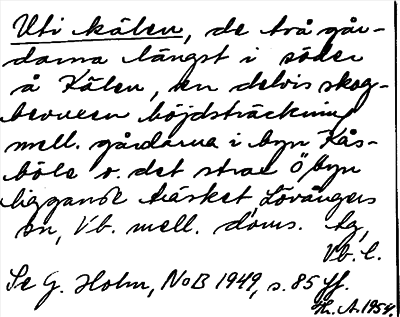 Uti kälen, de två går-
darna längst i söder
å Kälen, en delvis skog-
beuuen höjdsträckning
mell. gårdarna i byn Kås-
böle o. det strax ö byn
liggande träsket Lövångers
sn, Vb. mell. doms. lg,
Vb. l.
Se G. Holm, NoB 1949, s. 85 ff.
Th. A. 1954.